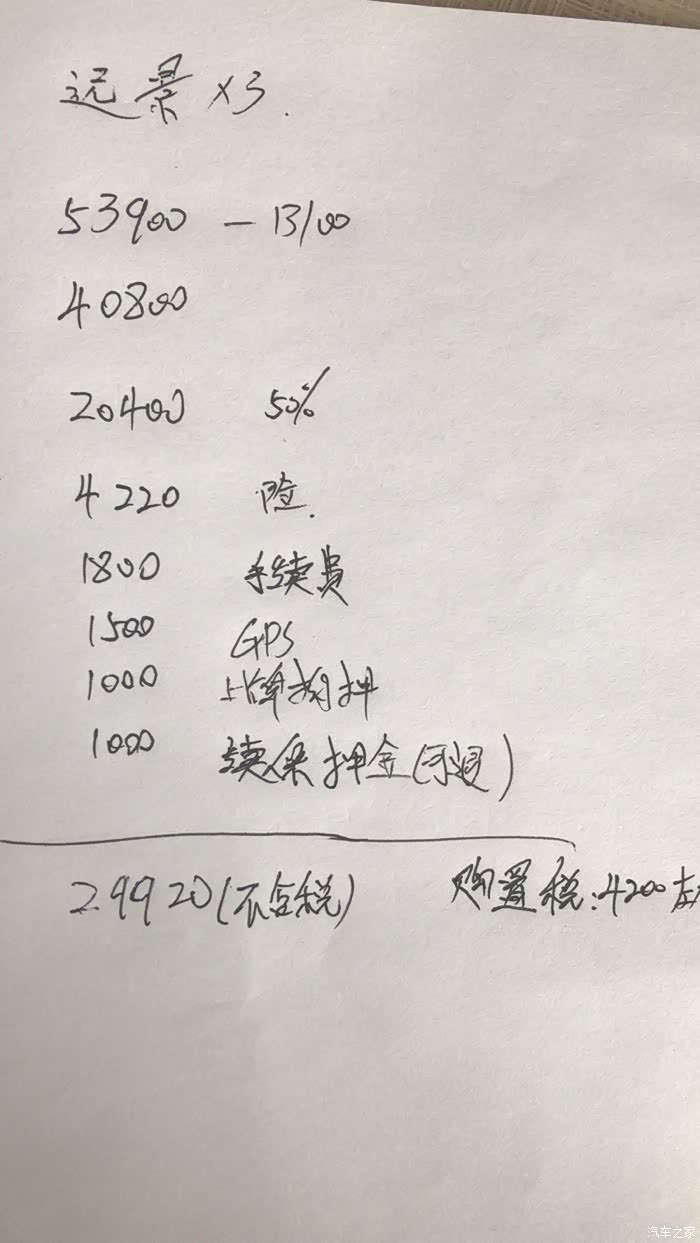 远景X3.
53900 - 13100
40800
20400 50%
4220 险.
1800 手续费
1500 GPS
1000 上牌抵押
1000 续保押金(可退)
29920(不含税) 购置税:4200左
汽车之家